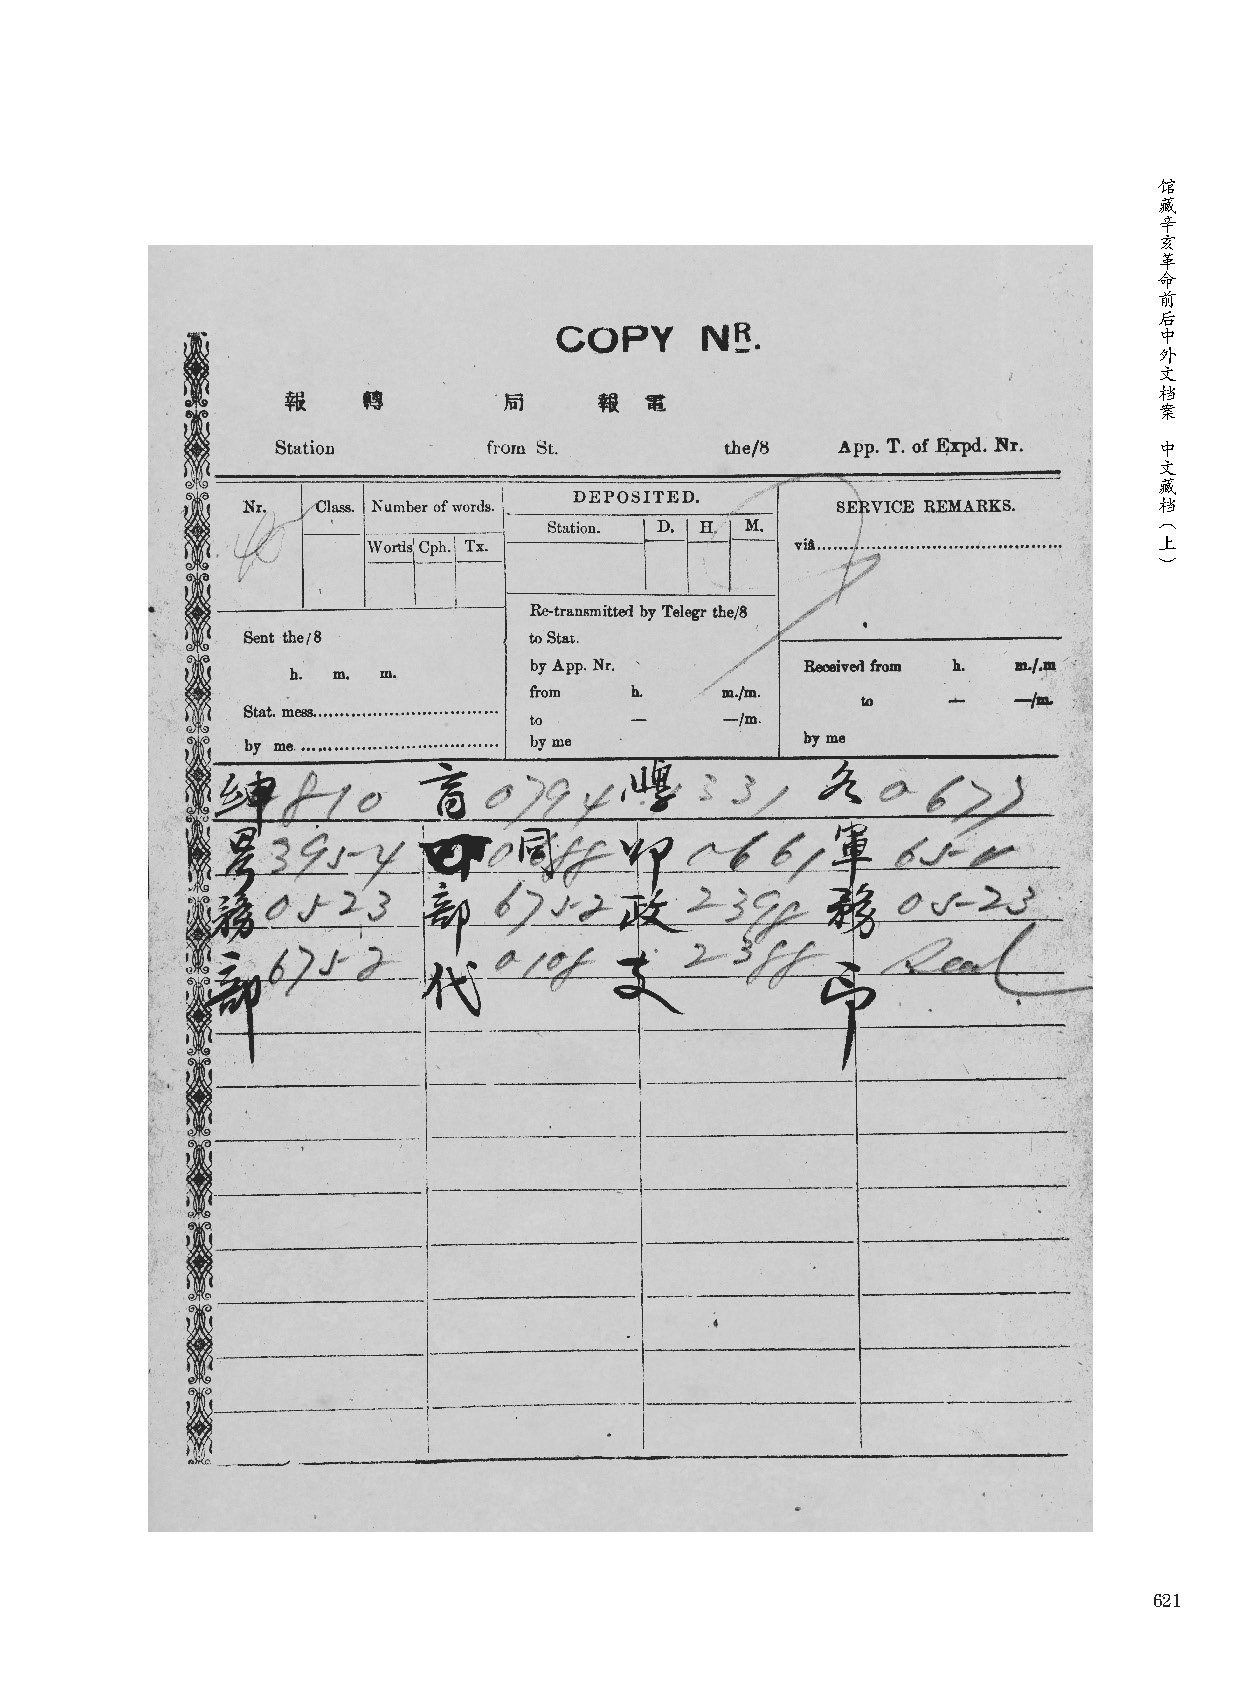 馆藏辛亥革命前后中外文档案 中文藏档（上）
COPY NR.
報 轉 局 報 電
Station from St. the/8 App. T. of Expd. Nr.
Nr. Class. Number of words. DEPOSITED. SERVICE REMARKS.
Station. D. H. M.
Words Cph. Tx.
viâ
40
Re-transmitted by Telegr the/8
Sent the/8 to Stat.
h. m. m. by App. Nr. Received from h. m./.m
from h. m./m. to — —/m.
Stat. mess. to — —/m.
by me by me by me
紳 810 0794 331 0673
3954 同 0688 叩 0661 軍 65
務 0523 部 6752 政 2398 務 0523
部 6752 代 0108 支 2388 印 Real
621